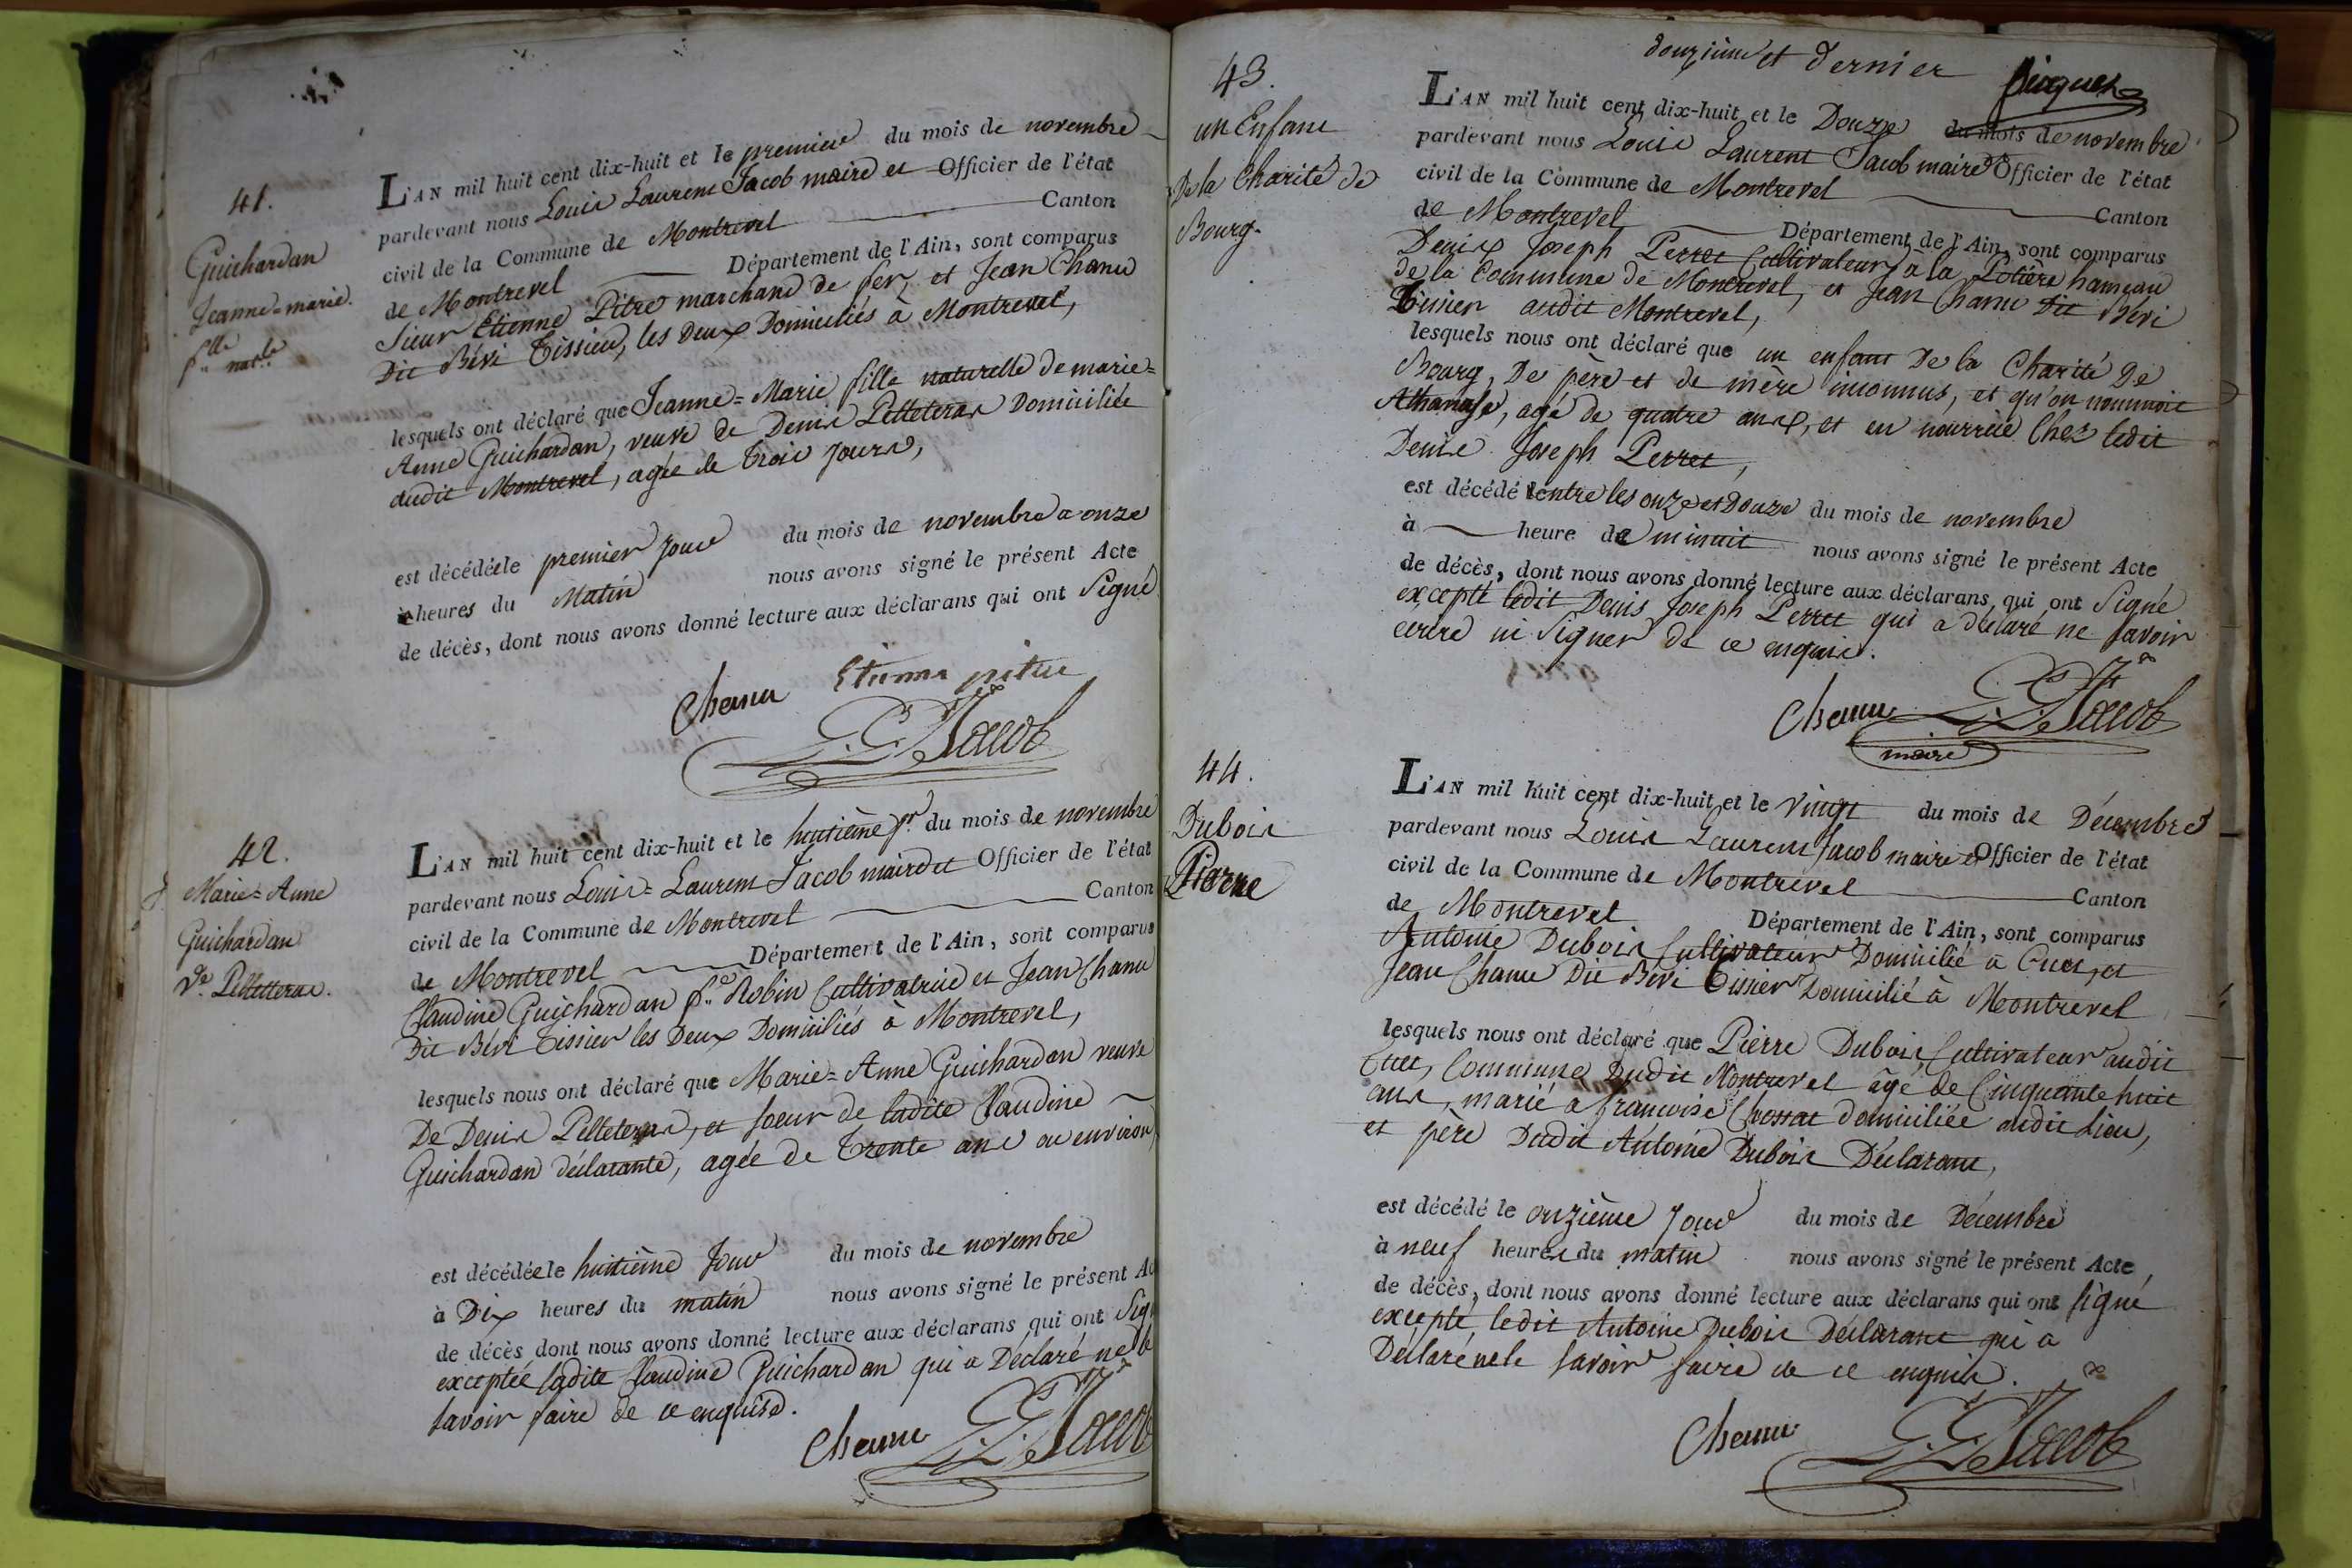 41.
Guichardan
Jeanne=marie.
f.lle nat.le
L'AN mil huit cent dix-huit et le premier du mois de novembre
pardevant nous Louis Laurent Jacob maire et Officier de l'état
civil de la Commune de Montrevel Canton
de Montrevel Département de l'Ain, sont comparus
sieur Etienne Pitre marchand de fer, et Jean Chanu
Dit Béri Tissier, les Deux Domiciliés à Montrevel,
lesquels ont déclaré que Jeanne=Marie fille naturelle de marie=
Anne Guichardan, veuve de Denis Pelleteras Domiciliée
audit Montrevel, agée de trois jours,
est décédée le premier jour du mois de novembre a onze
heures du Matin nous avons signé le présent Acte
de décès, dont nous avons donné lecture aux déclarans qui ont Signé
Chanu Etienne pitre
L. L. Jacob
42.
Marie=Anne
Guichardan
v.e Pelletteras.
L'AN mil huit cent dix-huit et le huitième jr. du mois de novembre
pardevant nous Louis=Laurent Jacob maire et Officier de l'état
civil de la Commune de Montrevel Canton
de Montrevel Département de l'Ain, sont comparus
Claudine Guichardan f.e Robin Cultivatrice et Jean Chanu
Dit Béri Tissier les Deux Domiciliés à Montrevel,
lesquels nous ont déclaré que Marie=Anne Guichardan veuve
De Denis Pelleteras, et soeur de ladite Claudine
Guichardan déclarante, agée de Trente ans ou environ,
est décédée le huitième Jour du mois de novembre
à Dix heures du matin nous avons signé le présent Ac
de décès dont nous avons donné lecture aux déclarans qui ont Sig
exceptée ladite Claudine Guichardan qui a Déclaré ne le
savoir faire de ce enquise.
Chanu L. L. Jacob
douzième et dernier
43.
un Enfant
De la Charité de
Bourg.
L'AN mil huit cent dix-huit et le Douze du mois de novembre
pardevant nous Louis Laurent Jacob maire et Officier de l'état
civil de la Commune de Montrevel Canton
de Montrevel Département de l'Ain, sont comparus
Denis Joseph Perret Cultivateur à la Potière hameau
de la Commune de Montrevel, et Jean Chanu dit Béri
Tissier audit Montrevel,
lesquels nous ont déclaré que un enfant De la Charité De
Bourg, De père et de mère inconnus, et qu'on nommoit
Athanase, agé de quatre ans, et en nourrice Chez ledit
Denis Joseph Perret,
est décédé entre les onze et Douze du mois de novembre
à heure de minuit nous avons signé le présent Acte
de décès, dont nous avons donné lecture aux déclarans, qui ont Signé
excepté ledit Denis Joseph Perret qui a déclaré ne savoir
ecrire ni Signer de ce enquis.
Chanu L. L. Jacob
maire
44.
Dubois
Pierre
L'AN mil huit cent dix-huit et le vingt du mois de Décembre
pardevant nous Louis Laurent Jacob maire et Officier de l'état
civil de la Commune de Montrevel Canton
de Montrevel Département de l'Ain, sont comparus
Antoine Dubois Cultivateur Domicilié à Cuet, et
Jean Chanu Dit Béri Tissier Domicilié à Montrevel
lesquels nous ont déclaré que Pierre Dubois Cultivateur audit
Cuet, Commune Dudit Montrevel âgé de Cinquante huit
ans, marié à francoise Chossat domiciliée audit Lieu,
et père Dudit Antoine Dubois Déclarant,
est décédé le onzième Jour du mois de Décembre
à neuf heures du matin nous avons signé le présent Acte
de décès, dont nous avons donné lecture aux déclarans qui ont signé
excepté ledit Antoine Dubois Déclarant qui a
Déclaré ne le savoir faire de ce enquis.
Chanu L. L. Jacob